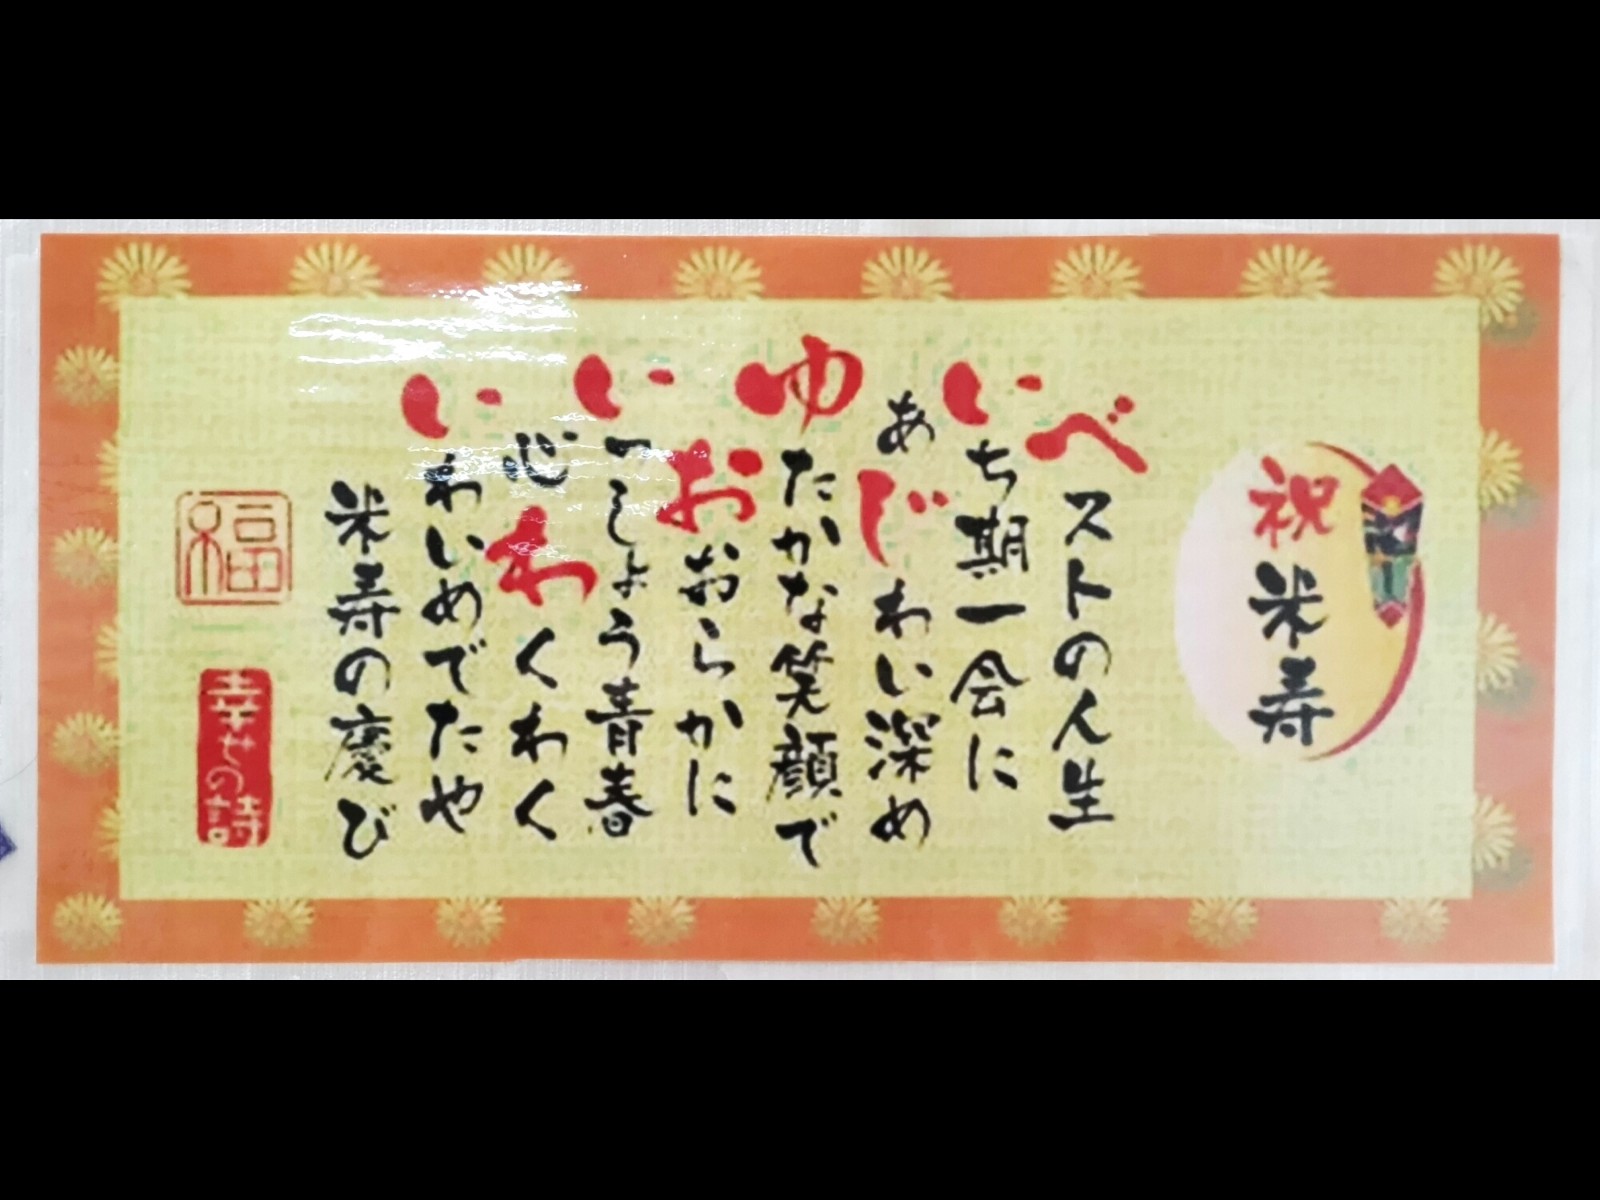 祝米寿
ベストの人生
いち期一会に
あじわい深め
ゆたかな笑顔で
おおらかに
いっしょう青春
心わくわく
いわいめでたや
米寿の慶び
福
幸せの詩